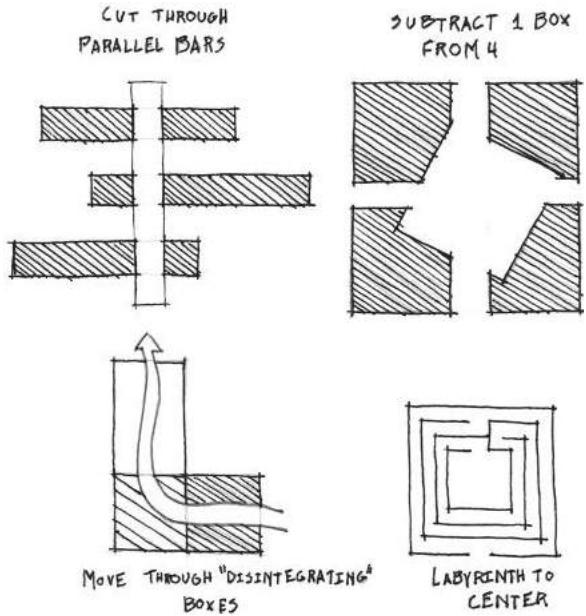 CUT THROUGH
PARALLEL BARS
SUBTRACT 1 BOX
FROM 4
MOVE THROUGH "DISINTEGRATING"
BOXES
LABYRINTH TO
CENTER